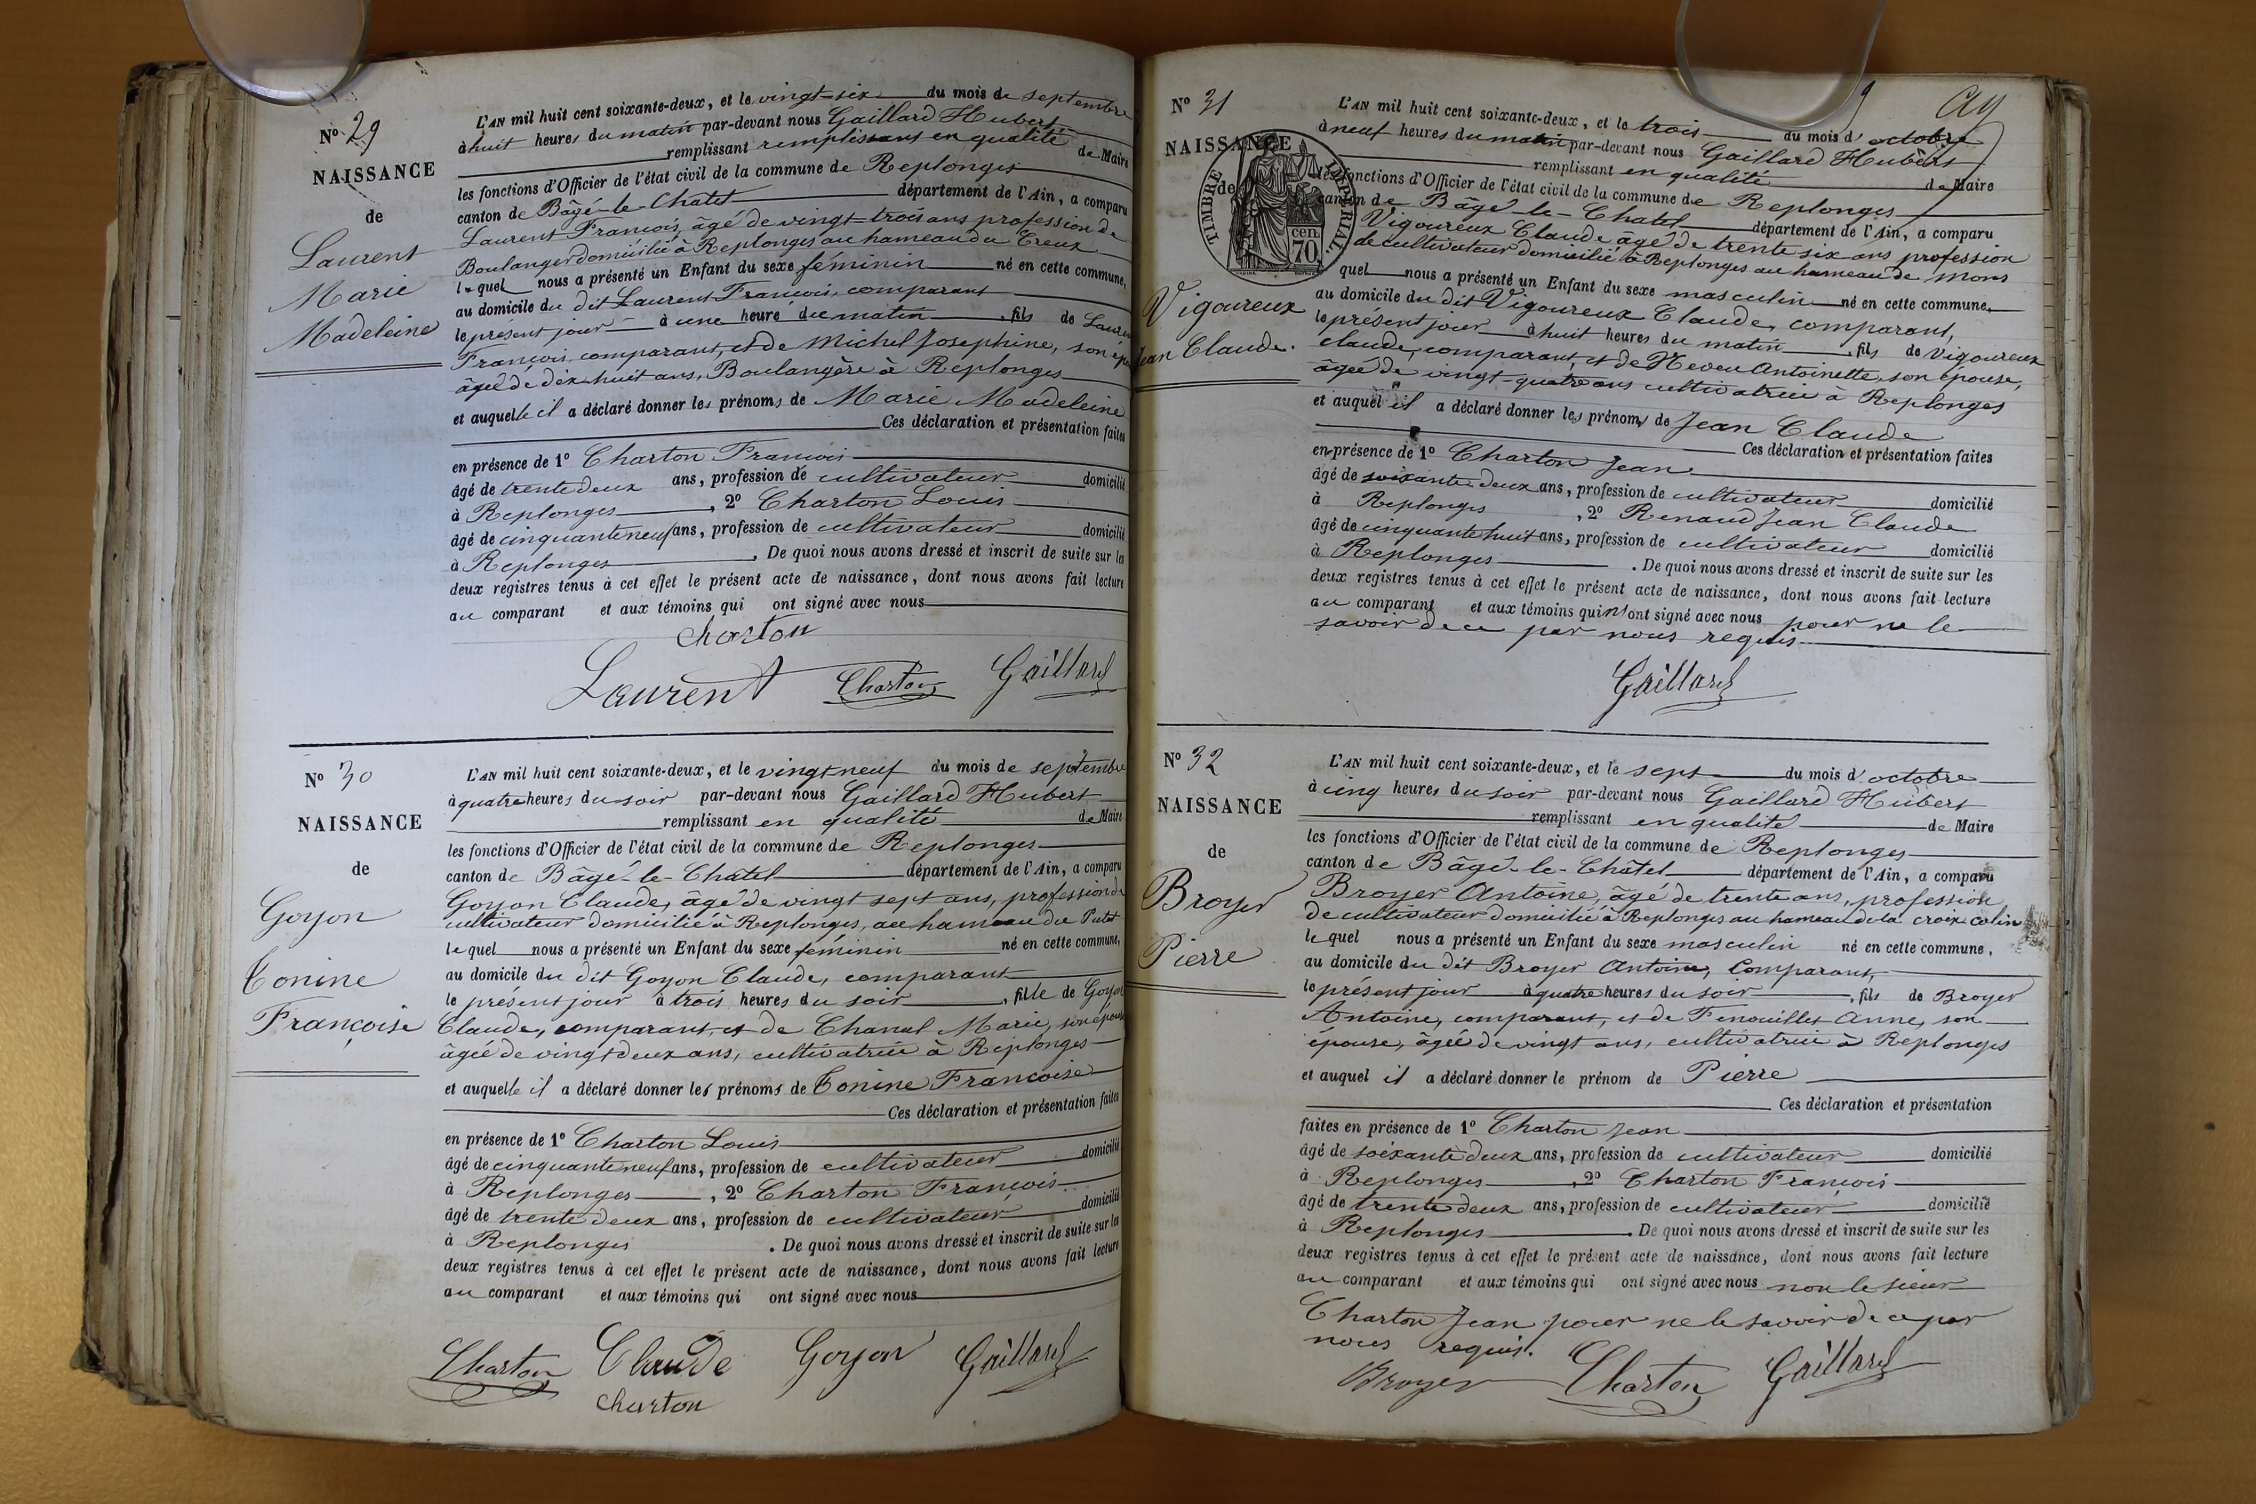 N° 29
NAISSANCE
de
Laurent
Marie
Madeleine
L'AN mil huit cent soixante-deux, et le vingt-six du mois de septembre
à huit heures du matin par-devant nous Gaillard Hubert
remplissant remplissant en qualité de Maire
les fonctions d'Officier de l'état civil de la commune de Replonges
canton de Bâgé-le-Châtel département de l'Ain, a comparu
Laurent François, âgé de vingt-trois ans profession de
Boulanger domicilié à Replonges au hameau du Creux
lequel nous a présenté un Enfant du sexe féminin né en cette commune,
au domicile du dit Laurent François, comparant
le présent jour à une heure du matin, fils de Laurent
François, comparant, et de Michel Josephine, son
âgée de dix-huit ans, Boulangère à Replonges
et auquelle il a déclaré donner les prénoms de Marie Madeleine
Ces déclaration et présentation faites
en présence de 1° Charton François
âgé de trente deux ans, profession de cultivateur domicilié
à Replonges, 2° Charton Louis
âgé de cinquante neuf ans, profession de cultivateur domicilié
à Replonges. De quoi nous avons dressé et inscrit de suite sur les
deux registres tenus à cet effet le présent acte de naissance, dont nous avons fait lecture
au comparant et aux témoins qui ont signé avec nous
Charton
Laurent Charton Gaillard
N° 30
NAISSANCE
de
Goyon
Tonine
Françoise
L'AN mil huit cent soixante-deux, et le vingt neuf du mois de septembre
à quatre heures du soir par-devant nous Gaillard Hubert
remplissant en qualité de Maire
les fonctions d'Officier de l'état civil de la commune de Replonges
canton de Bâgé-le-Châtel département de l'Ain, a comparu
Goyon Claude, âgé de vingt sept ans, profession de
cultivateur domicilié à Replonges, au hameau du
lequel nous a présenté un Enfant du sexe féminin né en cette commune,
au domicile du dit Goyon Claude, comparant
le présent jour à trois heures du soir, fille de Goyon
Claude, comparant, et de Chanel Marie, son épouse
âgée de vingt deux ans, cultivatrice à Replonges
et auquelle il a déclaré donner les prénoms de Tonine Françoise
Ces déclaration et présentation faites
en présence de 1° Charton Louis
âgé de cinquante neuf ans, profession de cultivateur domicilié
à Replonges, 2° Charton François
âgé de trente deux ans, profession de cultivateur domicilié
à Replonges. De quoi nous avons dressé et inscrit de suite sur les
deux registres tenus à cet effet le présent acte de naissance, dont nous avons fait lecture
au comparant et aux témoins qui ont signé avec nous
Charton Claude Goyon Gaillard
Charton
9
N° 31
NAISSANCE
de
TIMBRE IMPERIAL
70 cen.
Vigoureux
Jean Claude.
L'AN mil huit cent soixante-deux, et le trois du mois d'octobre
à neuf heures du matin par-devant nous Gaillard Hubert
remplissant en qualité de Maire
les fonctions d'Officier de l'état civil de la commune de Replonges
canton de Bâgé-le-Châtel département de l'Ain, a comparu
Vigoureux Claude âgé de trente six ans profession
de cultivateur domicilié à Replonges au hameau de Mons
quel nous a présenté un Enfant du sexe masculin né en cette commune,
au domicile du dit Vigoureux Claude, comparant,
le présent jour à huit heures du matin, fils de Vigoureux
Claude, comparant, et de Neveu Antoinette, son épouse,
âgée de vingt-quatre ans cultivatrice à Replonges
et auquel il a déclaré donner les prénoms de Jean Claude
Ces déclaration et présentation faites
en présence de 1° Charton Jean
âgé de soixante deux ans, profession de cultivateur domicilié
à Replonges, 2° Renaud Jean Claude
âgé de cinquante huit ans, profession de cultivateur domicilié
à Replonges. De quoi nous avons dressé et inscrit de suite sur les
deux registres tenus à cet effet le présent acte de naissance, dont nous avons fait lecture
au comparant et aux témoins qui n'ont signé avec nous pour ne le
savoir de ce par nous requis
Gaillard
N° 32
NAISSANCE
de
Broyer
Pierre
L'AN mil huit cent soixante-deux, et le sept du mois d'octobre
à cinq heures du soir par-devant nous Gaillard Hubert
remplissant en qualité de Maire
les fonctions d'Officier de l'état civil de la commune de Replonges
canton de Bâgé-le-Châtel département de l'Ain, a comparu
Broyer Antoine, âgé de trente ans, profession
de cultivateur domicilié à Replonges au hameau de la croix colin
lequel nous a présenté un Enfant du sexe masculin né en cette commune,
au domicile du dit Broyer Antoine, comparant,
le présent jour à quatre heures du soir, fils de Broyer
Antoine, comparant, et de Fenouillet Anne, son
épouse, âgée de vingt ans, cultivatrice à Replonges
et auquel il a déclaré donner le prénom de Pierre
Ces déclaration et présentation
faites en présence de 1° Charton Jean
âgé de soixante deux ans, profession de cultivateur domicilié
à Replonges, 2° Charton François
âgé de trente deux ans, profession de cultivateur domicilié
à Replonges. De quoi nous avons dressé et inscrit de suite sur les
deux registres tenus à cet effet le présent acte de naissance, dont nous avons fait lecture
au comparant et aux témoins qui ont signé avec nous non le sieur
Charton Jean pour ne le savoir de ce par
nous requis.
Broyer Charton Gaillard